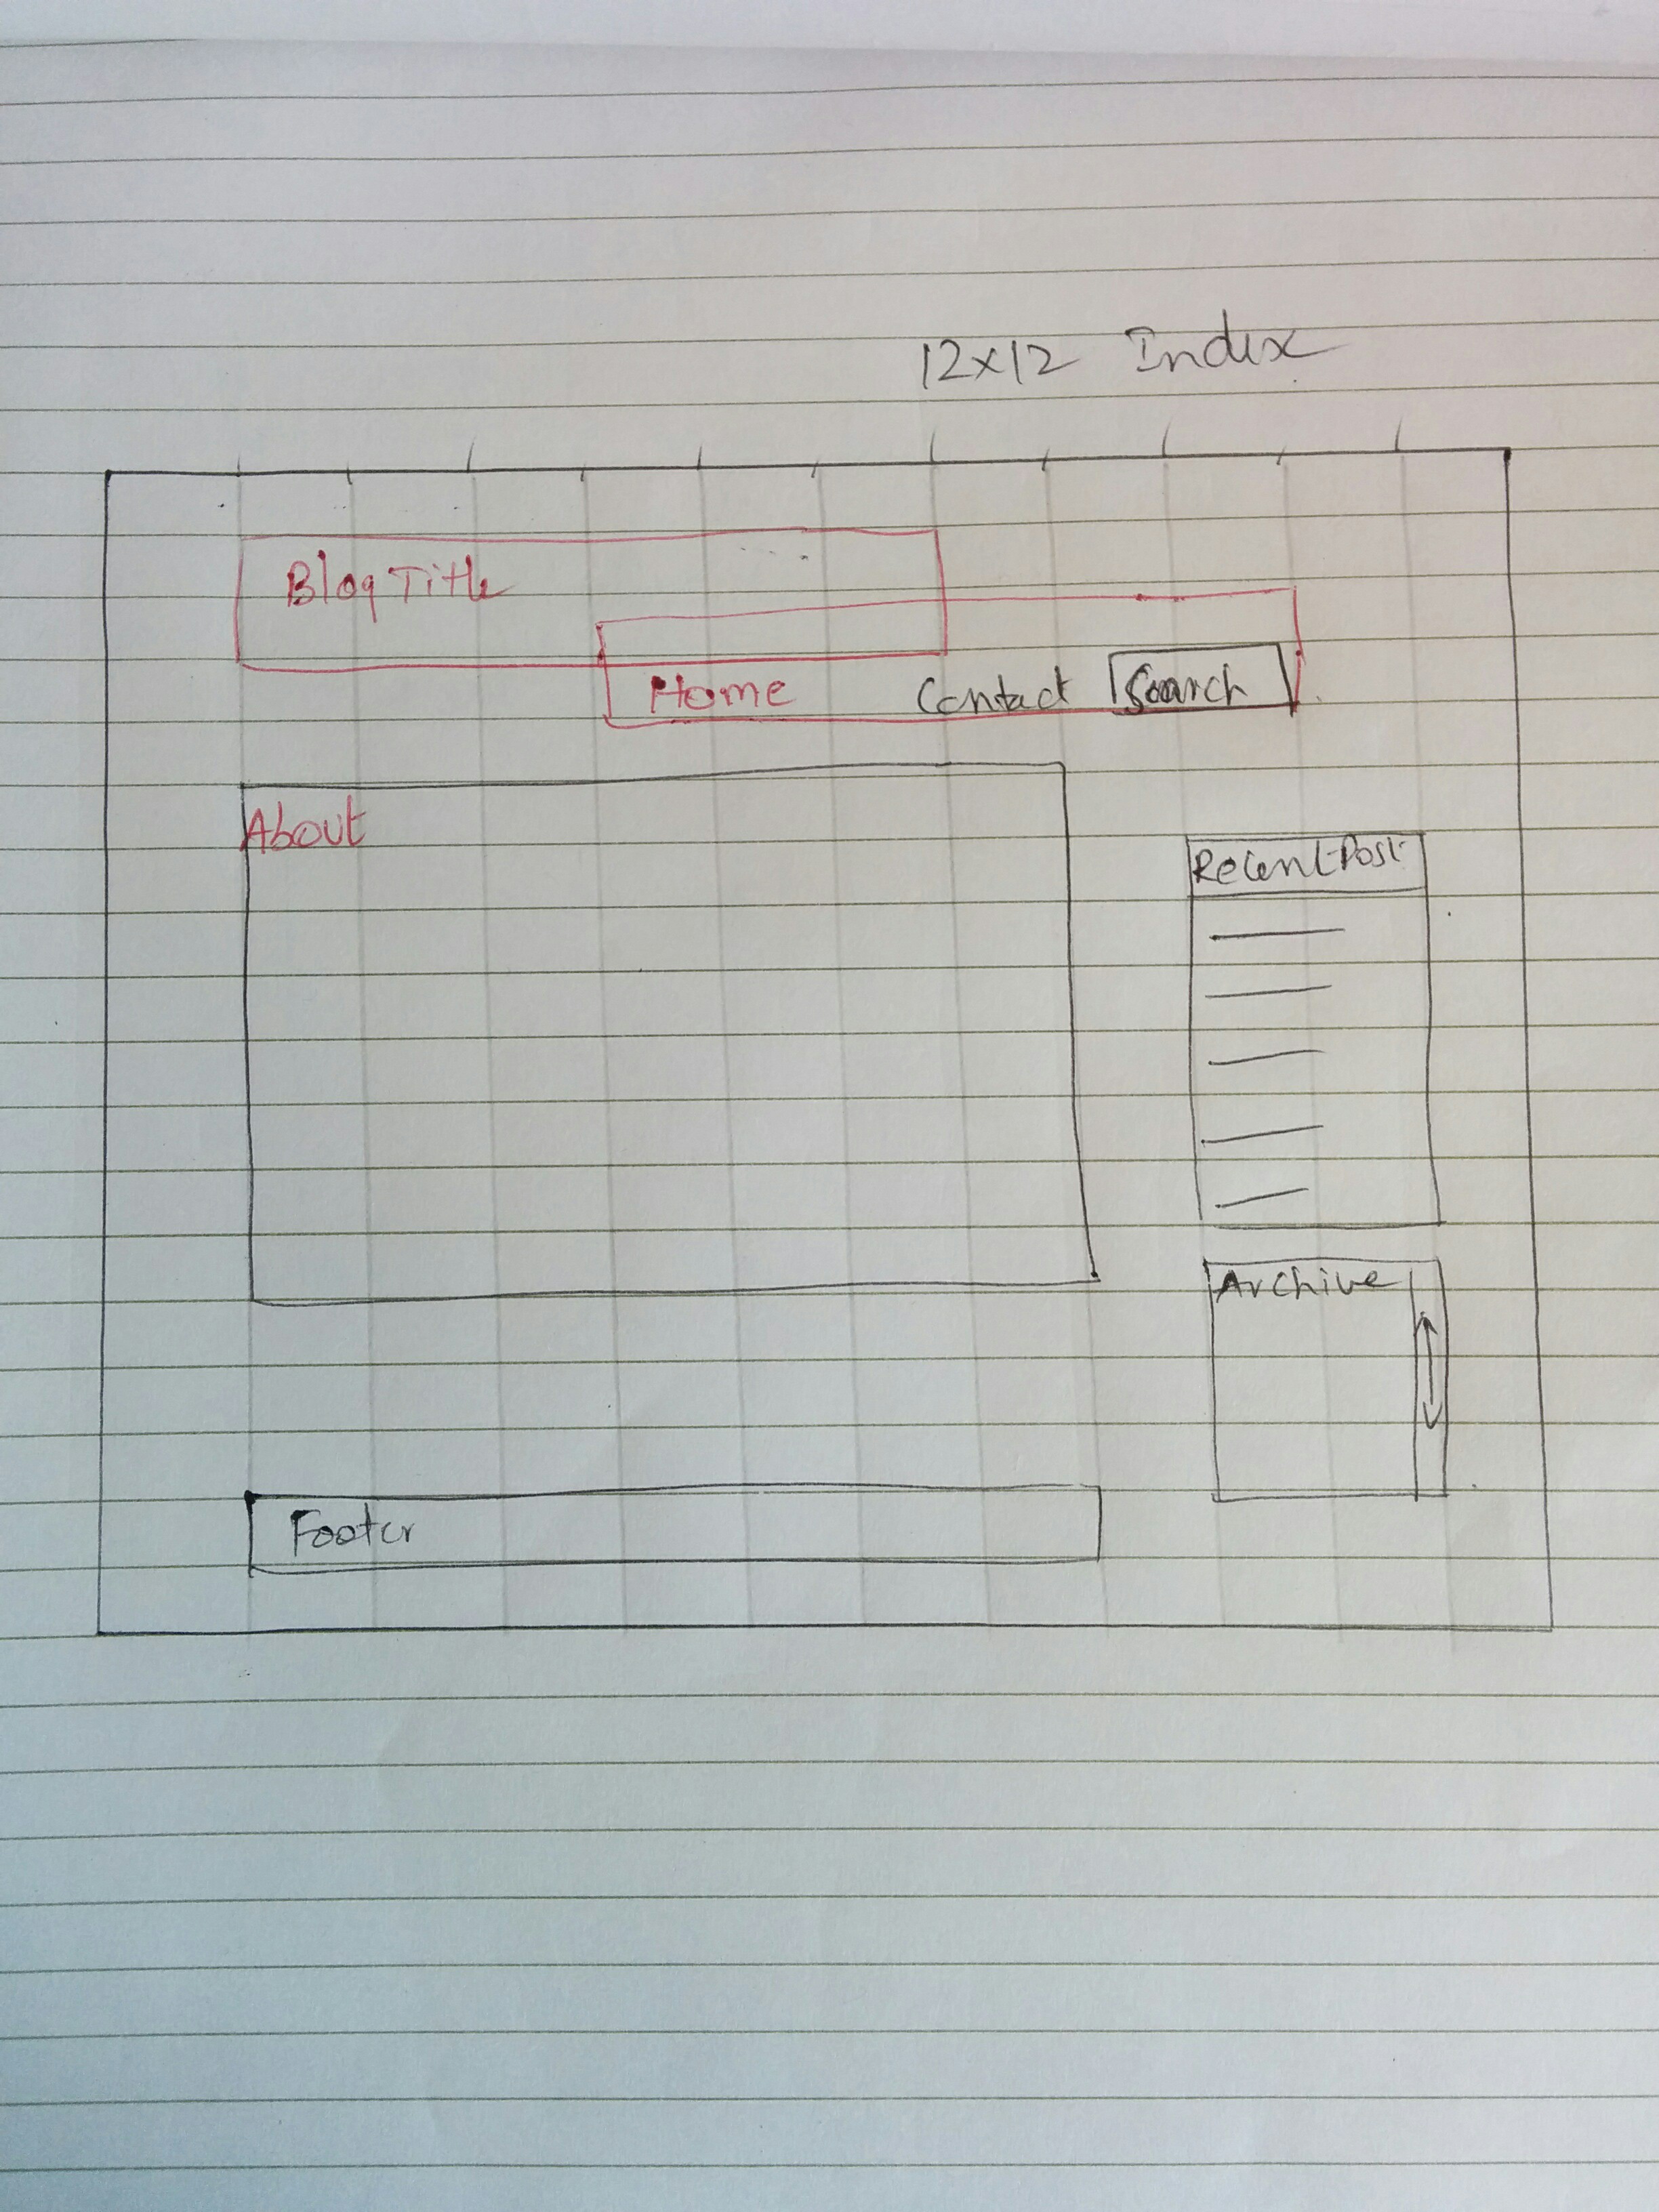 12x12 Index
Blog Title
Home Contact Search
About
Recent Post
Archive
Footer